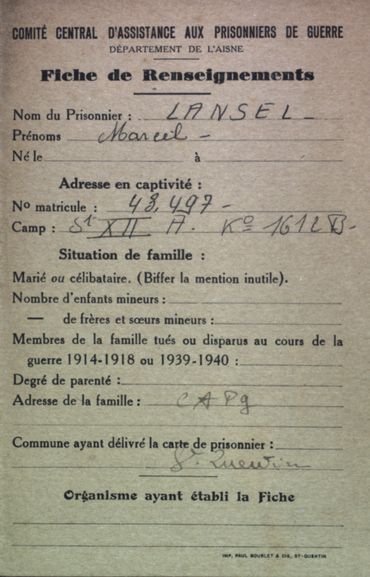 COMITÉ CENTRAL D'ASSISTANCE AUX PRISONNIERS DE GUERRE
DÉPARTEMENT DE L'AISNE
Fiche de Renseignements
Nom du Prisonnier : LANSEL -
Prénoms Marcel -
Né le à
Adresse en captivité :
No matricule : 43,497 -
Camp : St XII A. Ko 1612 B -
Situation de famille :
Marié ou célibataire. (Biffer la mention inutile).
Nombre d'enfants mineurs :
— de frères et sœurs mineurs :
Membres de la famille tués ou disparus au cours de la
guerre 1914-1918 ou 1939-1940 :
Degré de parenté :
Adresse de la famille : CAPg
Commune ayant délivré la carte de prisonnier :
St Quentin
Organisme ayant établi la Fiche
IMP. PAUL BOUBLET & CIE, ST-QUENTIN